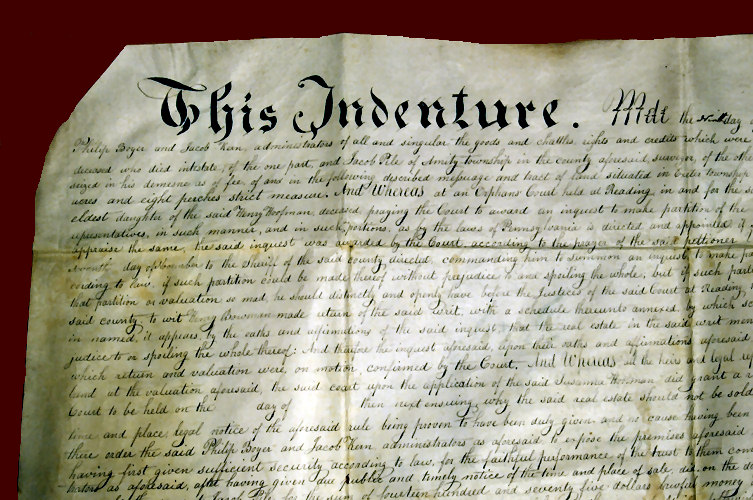 This Indenture. Made the Ninth day
Philip Boyer and Jacob Kern, administrators of all and singular the goods and chattles rights and credits which were
deceased who died intestate, of the one part, and Jacob Pile of Amity township in the county aforesaid, surveyor, of the other
seized in his demesne as of fee, of and in the following described messuage and tract of land situated in Exeter township
acres and eight perches strict measure, And Whereas at an Orphans Court held at Reading, in and for the
eldest daughter of the said Henry Hoofman, deceased, praying the Court to award an inquest to make partition of the
representatives, in such manner, and in such portions, as by the laws of Pennsylvania is directed and appointed, if
appraise the same, the said inquest was awarded by the Court, according to the prayer of the said petitioner
day of November to the Sheriff of the said county directed, commanding him to summon an inquest, to make
cording to law, if such partition could be made thereof without prejudice to and spoiling the whole; but if such
that partition or valuation so mad, he should distinctly and openly have before the Justices of the said Court at Reading
said county, to wit Henry Bowman made return of the said writ, with a schedule thereunto annexed, by which
in named, it appears by the oaths and affirmations of the said inquest, that the real estate in the said writ
judice to or spoiling the whole thereof: And therefore the inquest aforesaid, upon their oaths and affirmations aforesaid
which return and valuation were, on motion, confirmed by the Court, And Whereas all the heirs and legal
land at the valuation aforesaid, the said court upon the application of the said Susanna Hoofman did grant a
Court to be held on the day of then next ensuing, why the said real estate should not be sold
time and place, legal notice of the aforesaid rule being proven to have been duly given, and no cause having been
there order the said Philip Boyer and Jacob Kern administrators as aforesaid to expose the premises aforesaid
having first given sufficient security according to law, for the faithful performance of the trust to them
trators as aforesaid, after having given due public and timely notice of the time and place of sale, did, on the
Jacob Pile for the sum of fourteen hundred and seventy five dollars lawful money